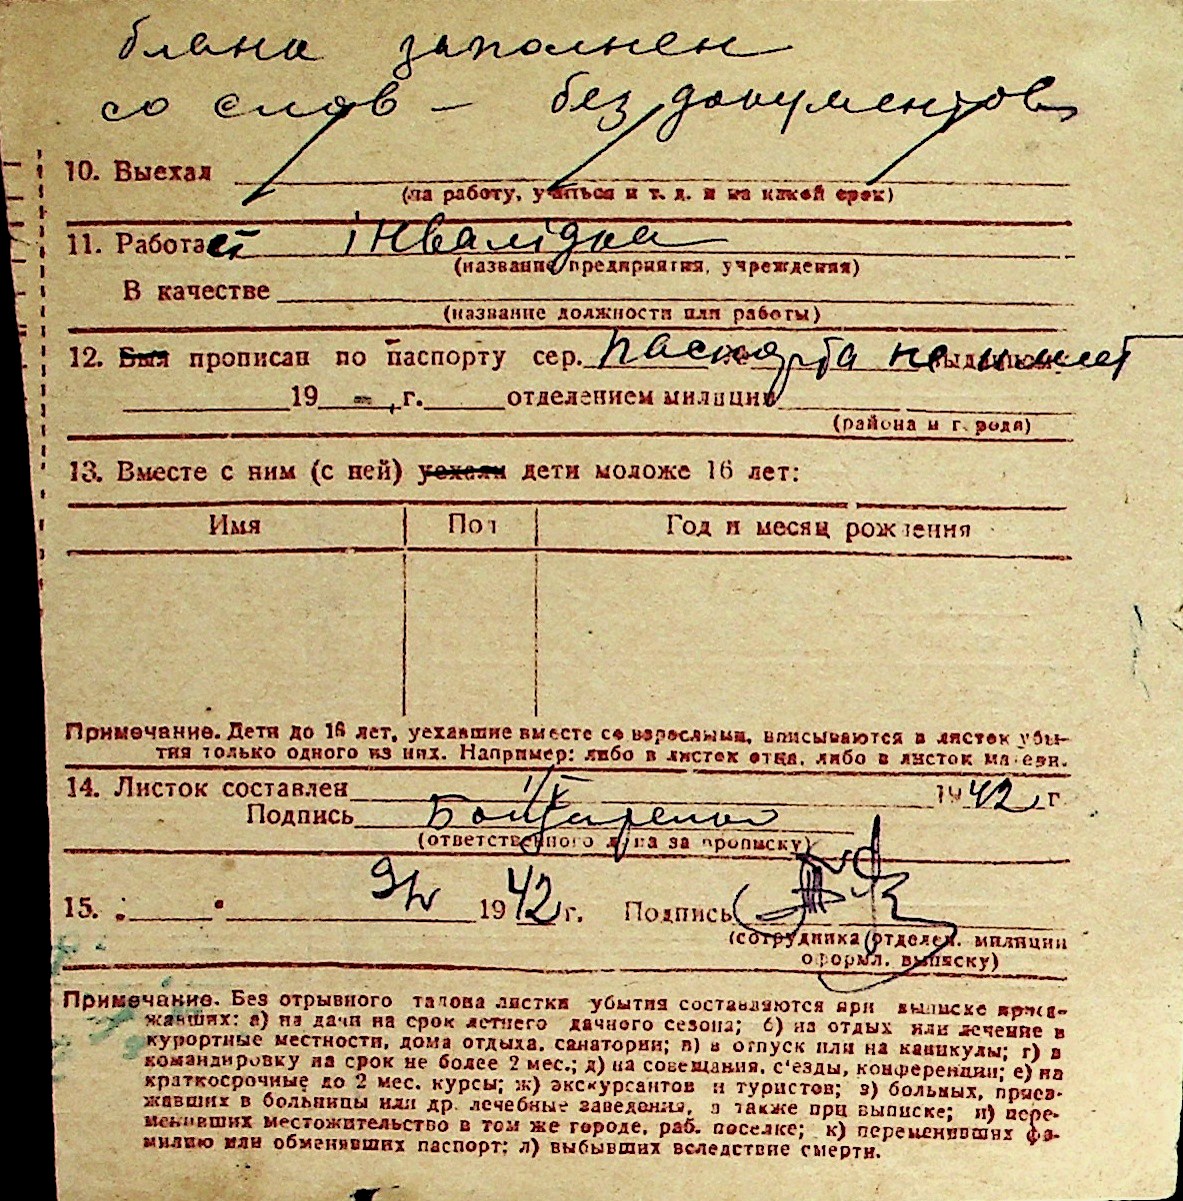 бланк заполнен
со слов – без документов
10. Выехал
(на работу, учиться и т. д. и на какой срок)
11. Работает інвалідка
(название предприятия, учреждения)
В качестве
(название должности или работы)
12. Был прописан по паспорту сер. паспорта не имеет
19 – г. отделением милиции
(района и города)
13. Вместе с ним (с ней) уехали дети моложе 16 лет:
Имя Пол Год и месяц рождения
Примечание. Дети до 16 лет, уехавшие вместе со взрослыми, вписываются в листок убы-
тия только одного из них. Например: либо в листок отца, либо в листок матери.
14. Листок составлен 1942 г
Подпись Бондаренко
(ответственного лица за прописку)
15. 1942 г. Подпись
(сотрудника отделен. милиции
оформл. выписку)
Примечание. Без отрывного талона листки убытия составляются при выписке приез-
жавших: а) на дачи на срок летнего дачного сезона; б) на отдых или лечение в
курортные местности, дома отдыха, санатории; в) в отпуск или на каникулы; г) в
командировку на срок не более 2 мес.; д) на совещания, с'езды, конференции; е) на
краткосрочные до 2 мес. курсы; ж) экскурсантов и туристов; з) больных, приез-
жавших в больницы или др. лечебные заведения, а также при выписке; и) пере-
менивших местожительство в том же городе, раб. поселке; к) переменивших фа-
милию или обменявших паспорт; л) выбывших вследствие смерти.